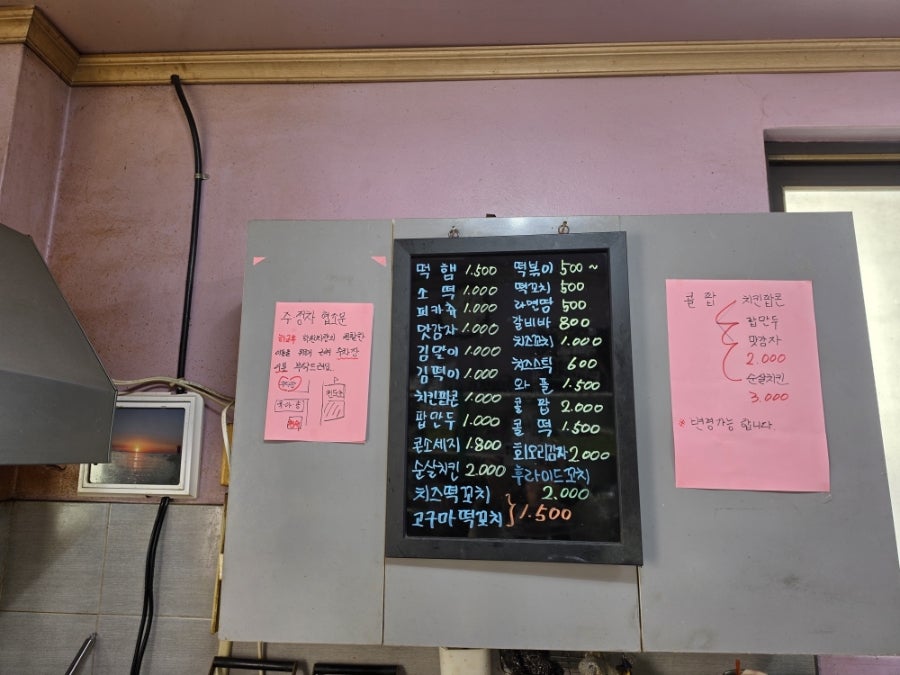 주 정차 협조문
학원차량의 원활한
이동을 위해 근처 주차장
이용 부탁드려요.
떡 햄 1.500
소 떡 1.000
피카츄 1.000
맛감자 1.000
김말이 1.000
김떡이 1.000
치킨팝콘 1.000
팝만두 1.000
콘소세지 1.800
순살치킨 2.000
치즈떡꼬치
고구마떡꼬치 } 1.500
떡볶이 500 ~
떡꼬치 500
라면땅 500
갈비바 800
치즈꼬치 1.000
치즈스틱 600
와플 1.500
콜 팝 2.000
콜 떡 1.500
회오리감자 2.000
후라이드꼬치
2.000
콜 팝 치킨팝콘
팝만두
맛감자
2.000
순살치킨
3.000
* 변경가능 합니다